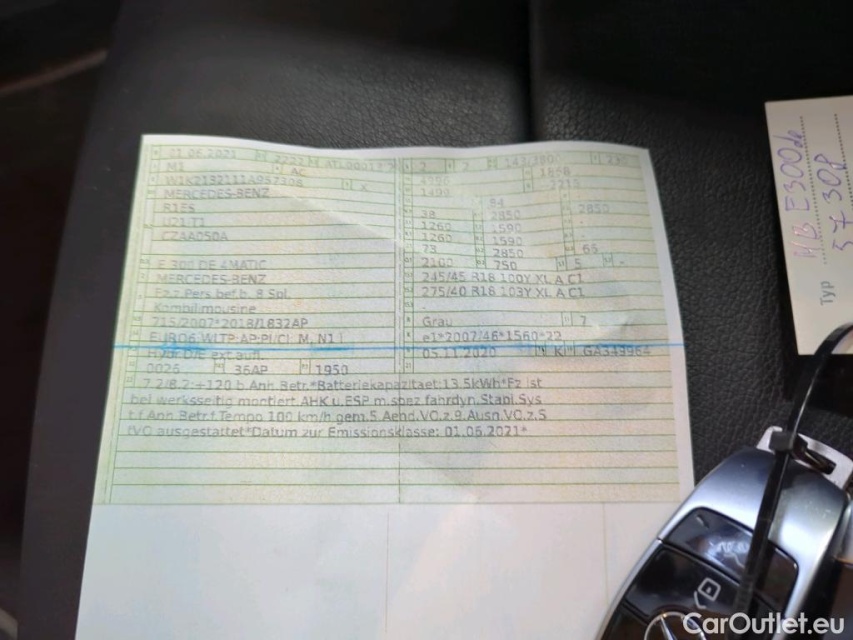 01.06.2021 2222 2 2
M1 AC 1868
X 2215
MERCEDES-BENZ 1498
84
R1ES 38 2850 2850
1260 1590
CZAA050A 1260 1590
73 2850 65
E 300 DE 4MATIC 2100 750 5 -
MERCEDES-BENZ 245/45 R18 100Y XL A C1
Fz.z.Pers.bef.b. 8 Spl. 275/40 R18 103Y XL A C1
Kombilimousine
715/2007*2018/1832AP Grau 7
EURO6 WLTP-AP-PI/CI M, N1 I e1*2007/46*1560*22
Hybr.D/E ext.aufl. 05.11.2020 K GA343964
0026 36AP 1950
7.2/8.2:+120 b.Anh.Betr.*Batteriekapazitaet:13.5kWh*Fz ist
bei werksseitig montiert.AHK u.ESP m.spez.fahrdyn.Stabi.Sys
t.f.Anh.Betr.f.Tempo 100 km/h gem.5.Aend.VO.z.9.Ausn.VO.z.S
tVO ausgestattet*Datum zur Emissionsklasse: 01.06.2021*
MB E300de
57 308
Typ
CarOutlet.eu